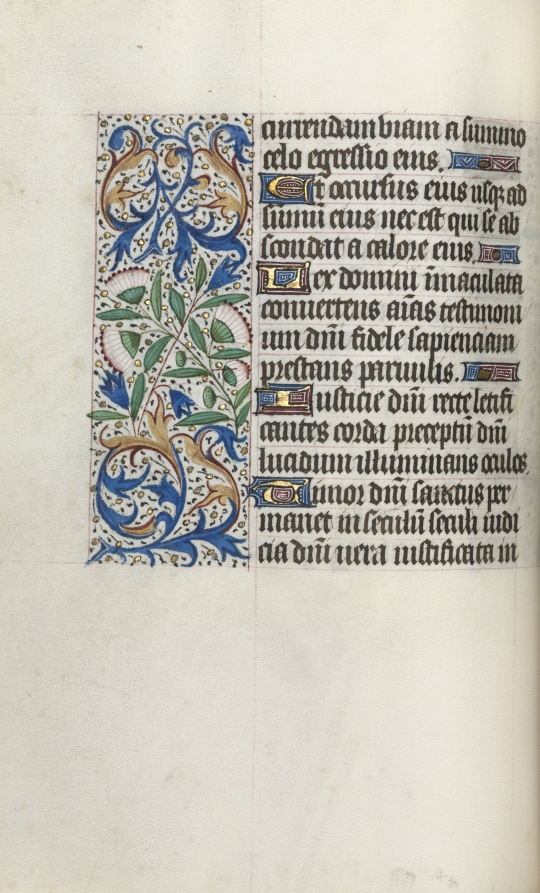 currendam viam a summo
celo egressio eius.
Et occursus eius usq; ad
summū eius nec est qui se ab
scondat a calore eius
Lex domini īmaculata
convertens aīas testimoni
um dm̄ fidele sapienciam
prestans parvulis.
Iusticie dm̄ recte letifi
cantes corda preceptū dm̄
lucidum illuminans oculos
Timor dm̄ sanctus per
manet in seculū seculi iudi
cia dm̄ vera iustificata in